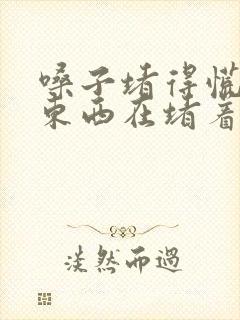 嗓子堵得慌
东西在堵着
淡然而過